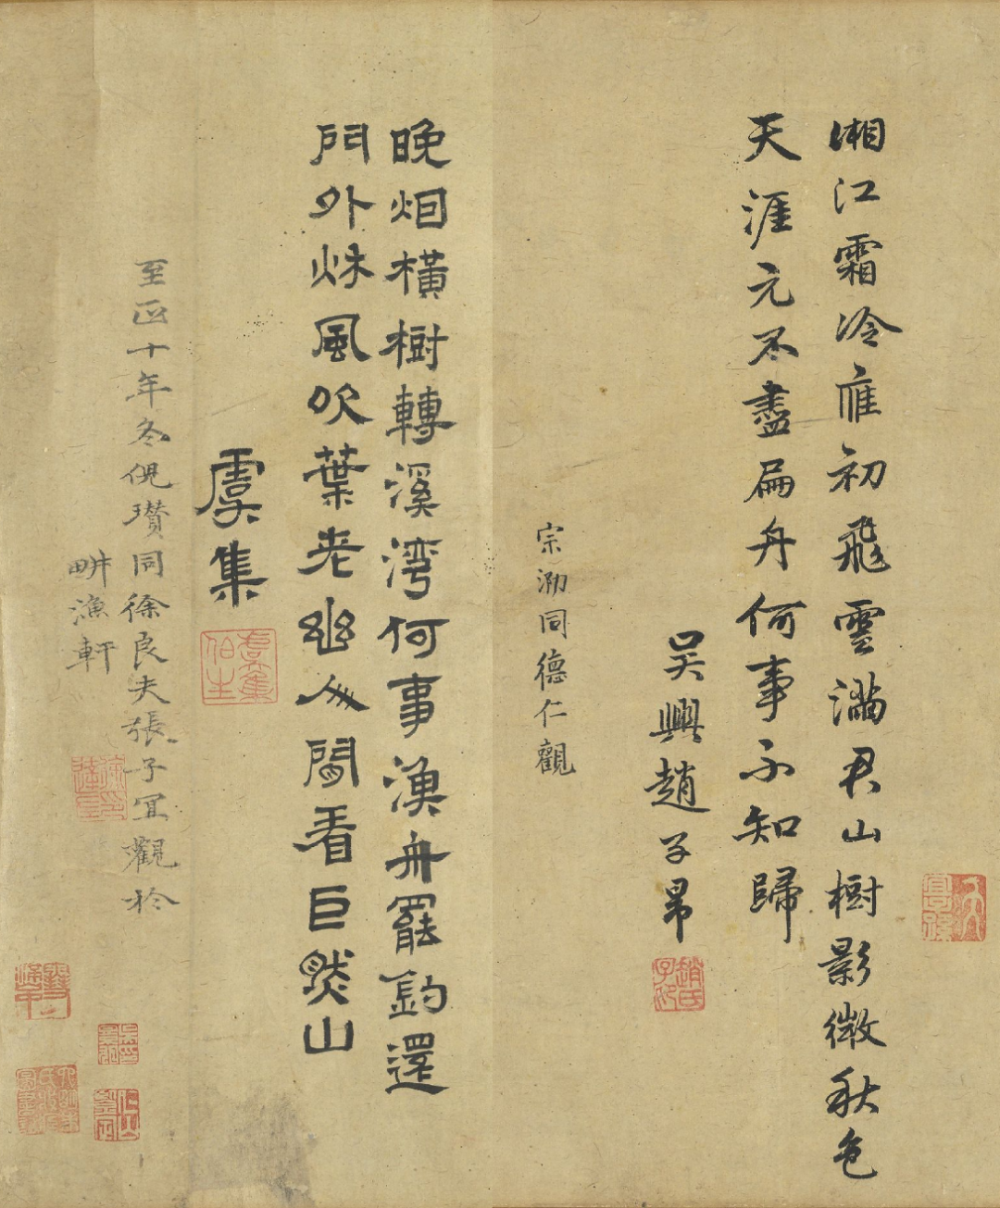 湘江霜冷雁初飛雲滿君山樹影微秋色
天涯元不盡扁舟何事不知歸
吳興趙子昂
宗泐同德仁觀
晚烟橫樹轉溪灣何事漁舟罷釣還
門外秌風吹葉老幽人閒看巨然山
虞集
至正十年冬倪瓚同徐良夫張子宜觀於
畊漁軒